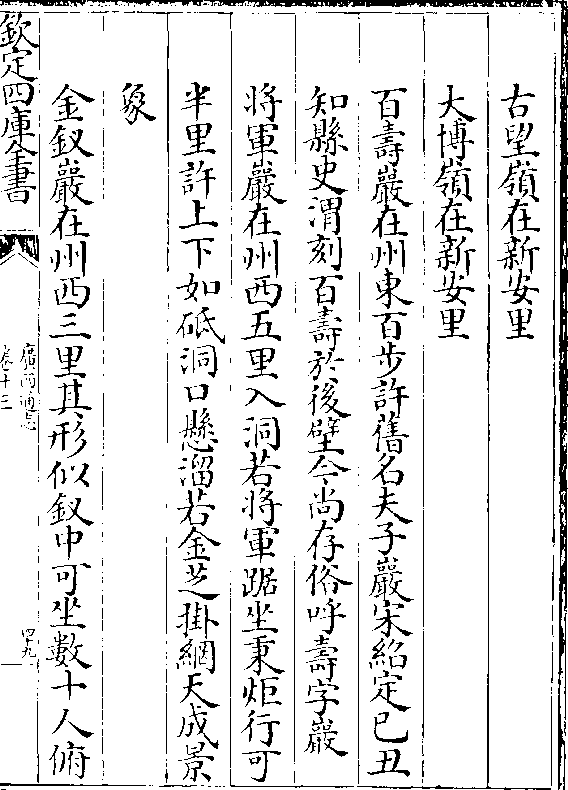 古望嶺在新安里
大博嶺在新安里
百壽巖在州東百步許舊名夫子巖宋紹定已丑
知縣史渭刻百壽於後壁今尚存俗呼壽字巖
將軍巖在州西五里入洞若將軍踞坐秉炬行可
半里許上下如砥洞口懸溜若金芝掛網天成景
象
金釵巖在州西三里其形似釵中可坐數十人俯
欽定四庫全書
廣西通志
卷十三
四九